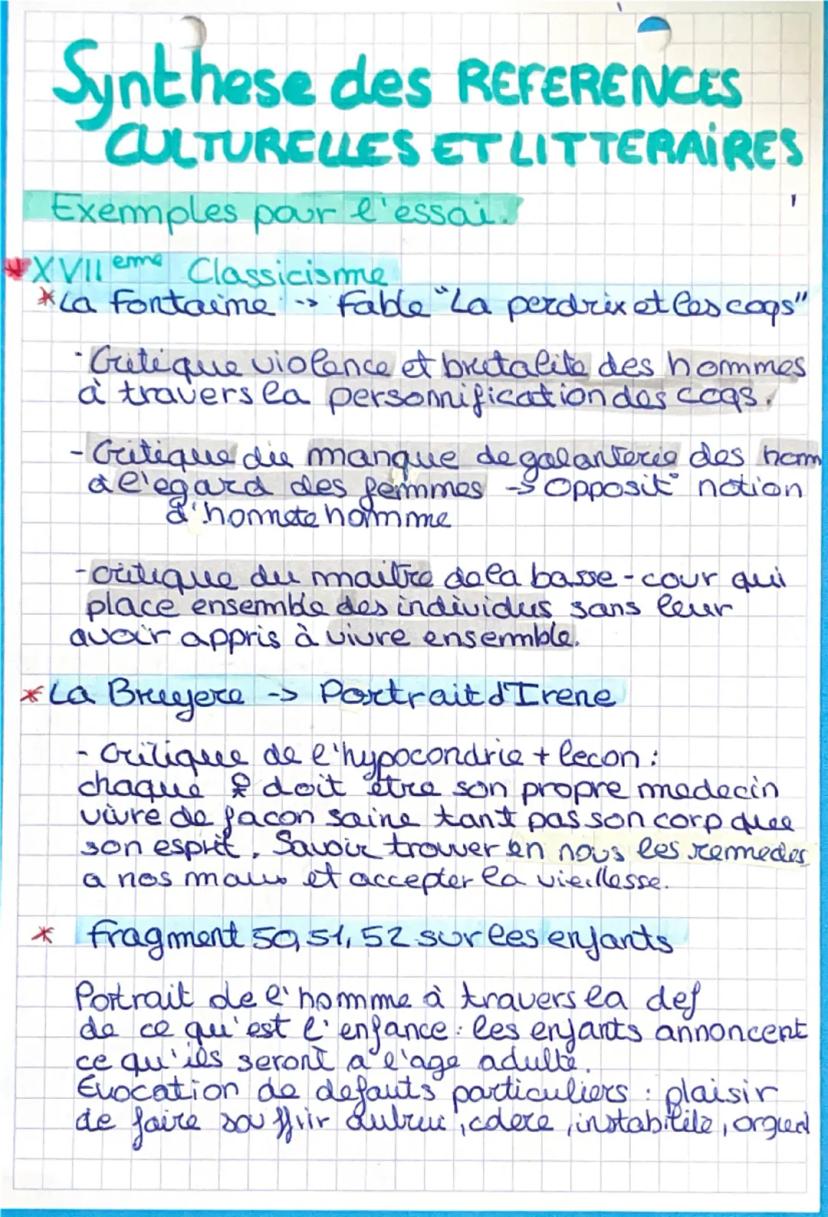 Synthese des REFERENCES
CULTURELLES ET LITTERAIRES
Exemples pour l'essai.
*XVII eme Classicisme
*La Fontaine -> Fable "La perdrix et les coqs"
· Critique violence et brutalite des hommes
à travers la personnification des coqs.
- Critique du manque de galanterie des hom
à l'egard des femmes -> Opposit° notion
d'honnete homme
- critique du maitre de la basse-cour qui
place ensemble des individus sans leur
avoir appris à vivre ensemble.
*La Bruyere -> Portrait d'Irene
- Critique de l'hypocondrie + lecon :
chaque doit être son propre medecin
vivre de facon saine tant pas son corp que
son esprit. Savoir trouver en nous les remedes
a nos maux et accepter la vieillesse.
* fragment 50, 51, 52 sur les enfants
Portrait de l'homme à travers la def
de ce qu'est l'enfance : les enfants annoncent
ce qu'ils seront a l'age adulte.
Evocation de defauts particuliers : plaisir
de faire souffrir autrui, colere, instabilite, orgueil